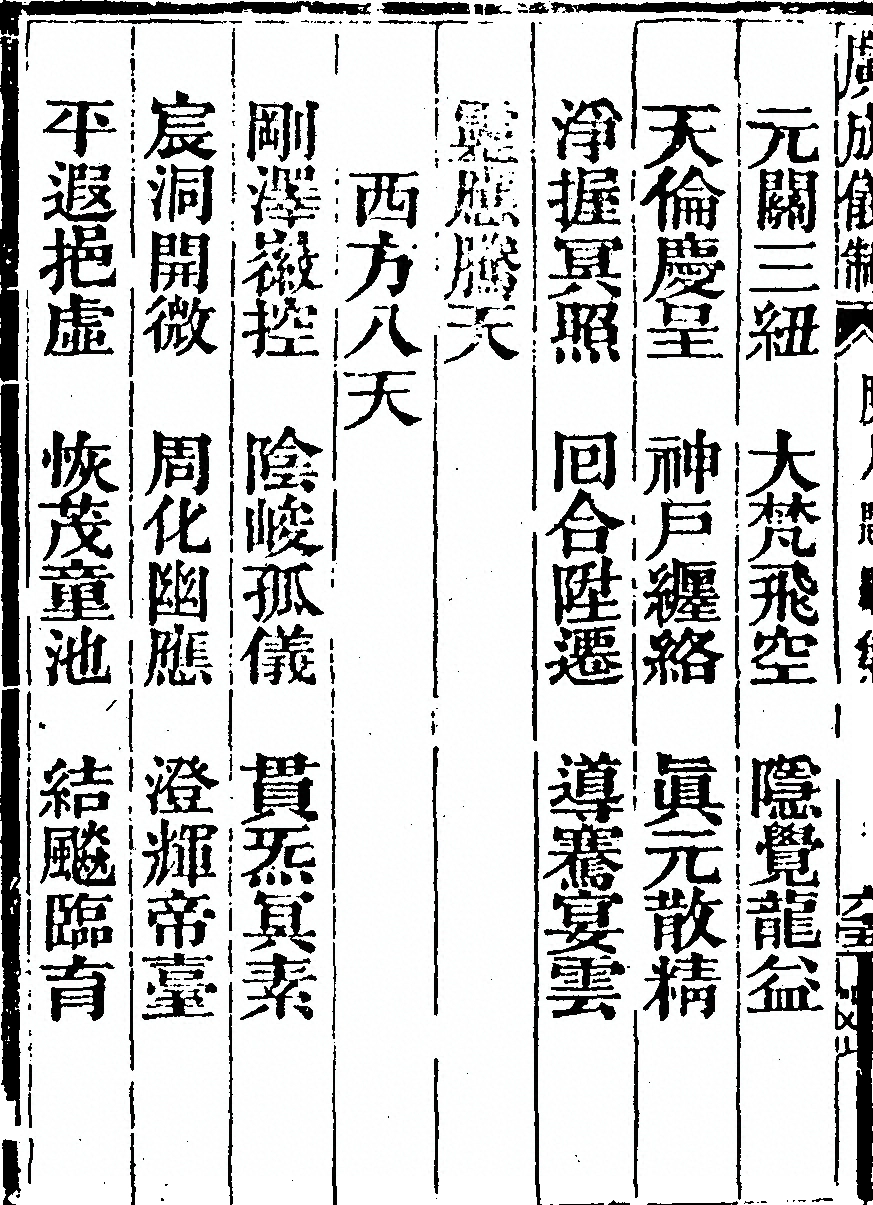 廣成儀制
元關三紐 大梵飛空 隱覺龍盆
天倫慶呈 神戶纏絡 眞元散精
淨握冥照 囘合陞遷 導騫宴雲
騰天
西方八天
剛澤徽控 陰峻孤儀 貫炁冥素
宸洞開微 周化幽應 澄輝帝臺
平遐挹虛 恢茂童池 結飈臨育